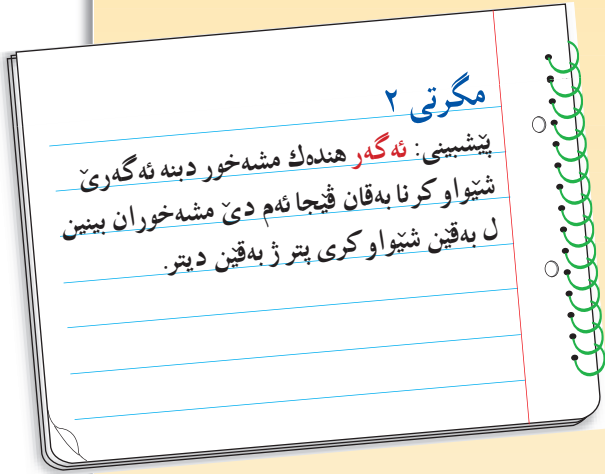 مگرتی ٢
پێشبینی: ئەگەر هندەك مشەخور دبنە ئەگەرێ
شێواو کرنا بەقان ڤێجا ئەم دێ مشەخوران بینین
ل بەقێن شێواو کری پتر ژ بەقێن دیتر.